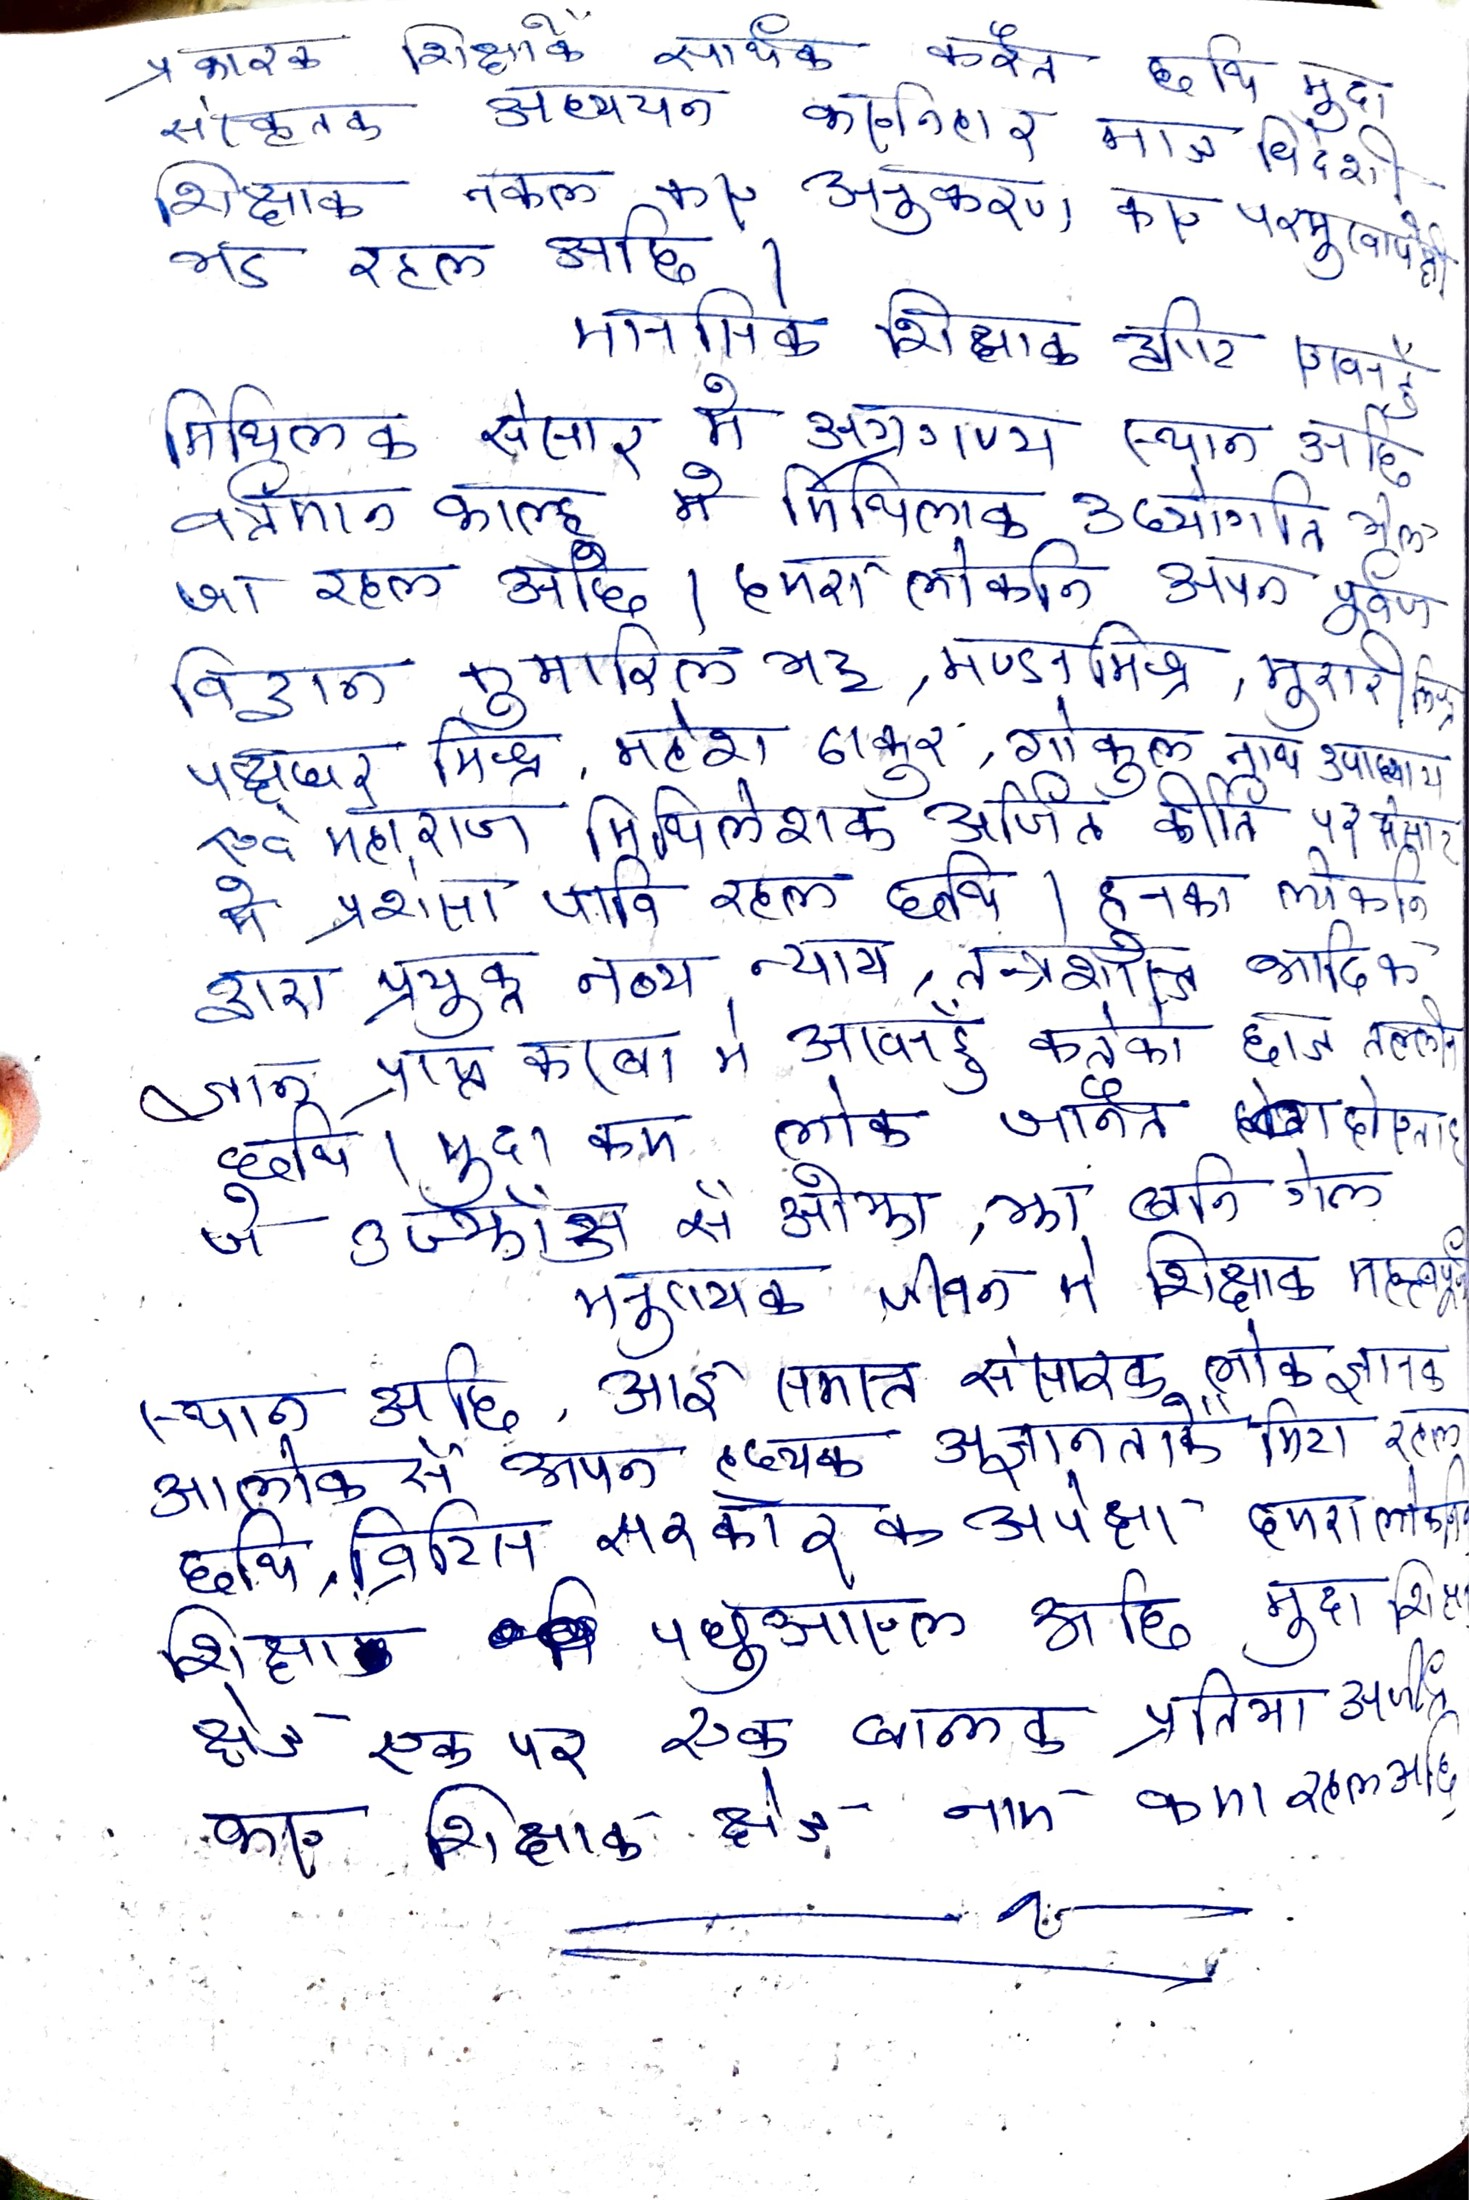 प्रकारक शिक्षाकेँ सार्थक करैत छथि मुदा
संस्कृतक अध्ययन कएनिहार मात्र विदेशी
शिक्षाक नकल कए अनुकरण कए परमुखापेक्षी
भऽ रहल अछि ।
मानसिक शिक्षाक
मिथिलक संसार मे अग्रगण्य स्थान अछि
वर्तमान काल्हु मे मिथिलाक भेल
जा रहल अछि । हमरा लोकनि अपन पूर्वज
विद्वान कुमारिल भट्ट, मण्डन मिश्र, मुरारी मिश्र
पक्षधर मिश्र, महेश ठाकुर, गोकुल नाथ उपाध्याय
एवं महाराज मिथिलेशक अर्जित कीर्ति पर संसार
मे प्रशंसा पावि रहल छथि । हुनका लोकनि
द्वारा प्रयुक्त नव्य न्याय, तन्त्रशास्त्र आदिक
ज्ञान प्राप्त करबा मे कतेको छात्र तल्लीन
छथि । मुदा कम लोक जनैत होएताह
जे सँ ओझा, झा बनि गेल
मनुष्यक जीवन मे शिक्षाक महत्त्वपूर्ण
स्थान अछि, आई समस्त संसारक लोक ज्ञानक
आलोक सँ अपन हृदयक अज्ञानताकेँ मिटा रहल
छथि, ब्रिटिस सरकार क अपेक्षा हमरा लोकनिक
शिक्षा पछुआएल अछि मुदा शिक्षा
क्षेत्र एक पर एक बालक प्रतिभा अर्जित
कए शिक्षाक क्षेत्र नाम कमा रहल अछि